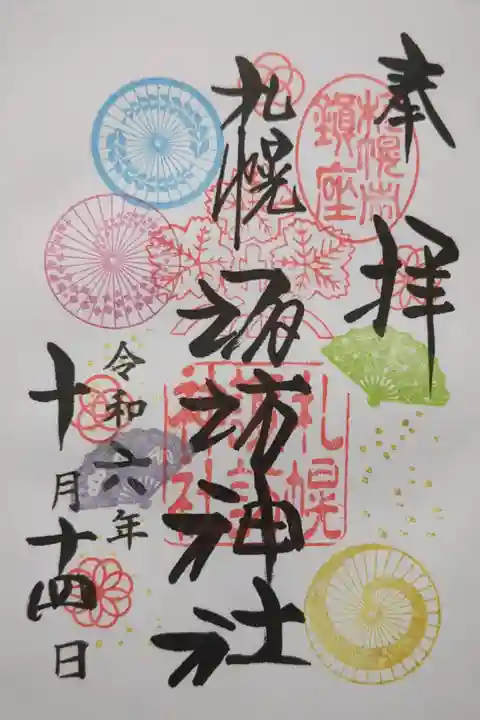 奉拝
札幌鎮座
札幌
諏訪神社
札幌
諏訪
神社
令和六年
十月十四日